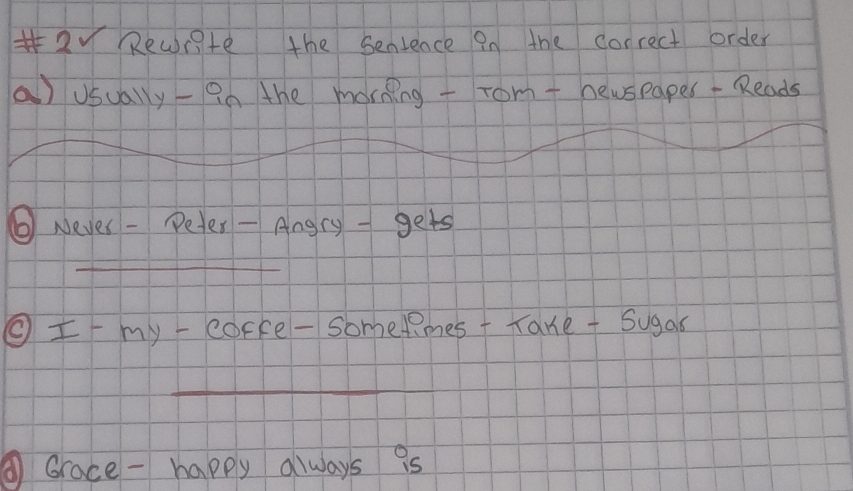 #2✓ Rewrite the sentence in the correct order
a) usually - in the morning - Tom - newspaper - Reads
b Never - Peter - Angry - gets
c I - my - coffe - sometimes - Take - Sugar
d Grace - happy always is